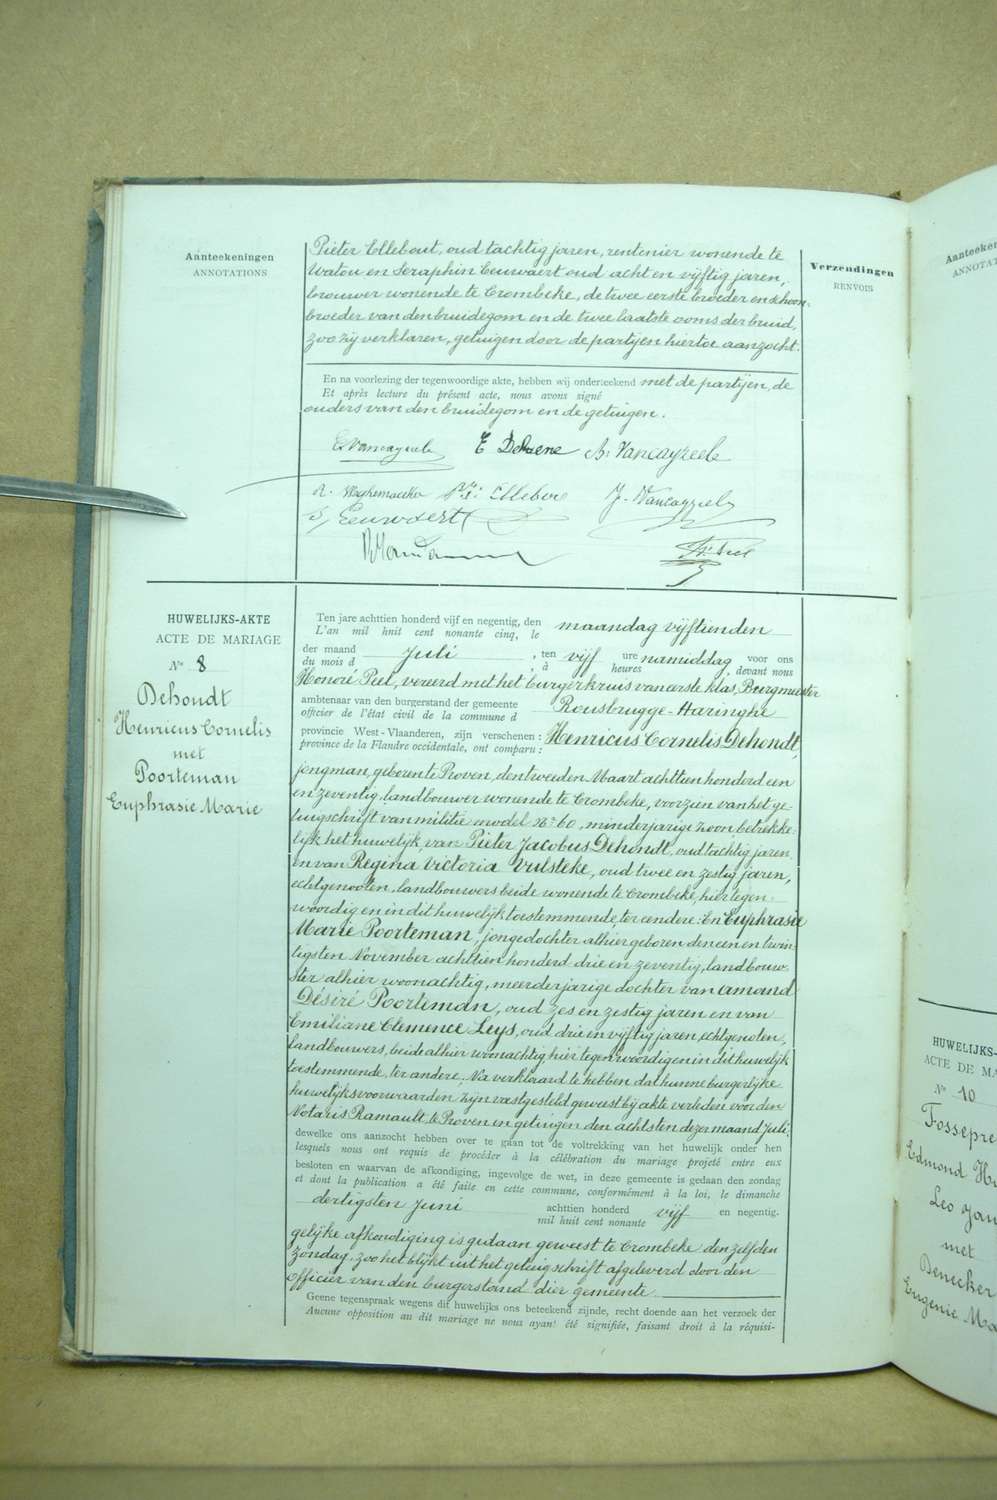 Aanteekeningen
ANNOTATIONS
Verzendingen
RENVOIS
Pieter Ellebout, oud tachtig jaren, rentenier wonende te
Watou en Seraphin Eeuwaert oud acht en vijftig jaren,
brouwer wonende te Crombeke, de twee eerste broeder en schoon-
broeder van den bruidegom en de twee laatste ooms der bruid,
zoo zij verklaren, getuigen door de partijen hiertoe aanzocht.
En na voorlezing der tegenwoordige akte, hebben wij onderteekend met de partijen, de
Et après lecture du présent acte, nous avons signé
ouders van den bruidegom en de getuigen.
E. Vancayzeele E. Dehaene B. Vancayzeele
Ellebou J. Vancayzeele
S. Eeuwaert
Hre Peel
HUWELIJKS-AKTE
ACTE DE MARIAGE
No 8
Dehondt
Henricus Cornelis
met
Poorteman
Euphrasie Marie
Ten jare achttien honderd vijf en negentig, den maandag vijftienden
L'an mil huit cent nonante cinq, le
der maand Juli, ten vijf ure namiddag voor ons
du mois d , à heures , devant nous
Honoré Peel, vereerd met het burgerkruis van eerste klas, Burgmeester
ambtenaar van den burgerstand der gemeente Rousbrugge-Haringhe
officier de l'état civil de la commune d
provincie West-Vlaanderen, zijn verschenen: Henricus Cornelis Dehondt,
province de la Flandre occidentale, ont comparu:
jongman, geboren te Proven, den tweeden Maart achttien honderd een
en zeventig, landbouwer wonende te Crombeke, voorzien van het ge-
tuigschrift van militie model No 60, minderjarige zoon, betrekke-
lijk het huwelijk, van Pieter Jacobus Dehondt, oud tachtig jaren
en van Regina Victoria Vulsteke, oud twee en zestig jaren,
echtgenooten, landbouwers beide wonende te Crombeke, hier tegen-
woordig en in dit huwelijk toestemmende, ter eendere: En Euphrasie
Marie Poorteman, jongedochter alhier geboren den een en twin-
tigsten November achttien honderd drie en zeventig, landbouw-
ster alhier woonachtig, meerderjarige dochter van Amand
Désiré Poorteman, oud zes en zestig jaren en van
Emiliane Clemence Leys, oud drie en vijftig jaren, echtgenoten,
landbouwers, beide alhier woonachtig, hier tegenwoordig en in dit huwelijk
toestemmende, ter andere; Na verklaard te hebben dat hunne burgerlijke
huwelijksvoorwaarden zijn vastgesteld geweest bij akte verleden voor den
Notaris Ramault te Proven en getuigen den achtsten dezer maand Juli;
dewelke ons aanzocht hebben over te gaan tot de voltrekking van het huwelijk onder hen
lesquels nous ont requis de procéder à la célébration du mariage projeté entre eux
besloten en waarvan de afkondiging, ingevolge de wet, in deze gemeente is gedaan den zondag
et dont la publication a été faite en cette commune, conformément à la loi, le dimanche
dertigsten Juni achttien honderd vijf en negentig.
mil huit cent nonante
gelijke afkondiging is gedaan geweest te Crombeke den zelfden
zondag, zoo het blijkt uit het getuigschrift afgeleverd door den
officier van den burgerstand dier gemeente
Geene tegenspraak wegens dit huwelijks ons beteekend zijnde, recht doende aan het verzoek der
Aucune opposition au dit mariage ne nous ayant été signifiée, faisant droit à la réquisi-
Aanteeken
ANNOTAT
HUWELIJKS-
ACTE DE MA
No 10
Fossepre
Edmond He
Leo Jan
met
Denecker
Eugenie Ma